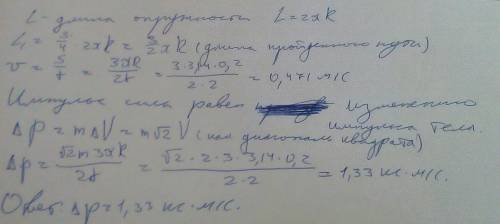 L - длина окружности L = 2πR
L₁ = 3/4 · 2πR = 3/2 πR (длина пройденного пути)
v = S/t = 3πR/2t = 3·3,14·0,2/2·2 = 0,471 м/с
Импульс силы равен изменению
импульса тела.
Δp = mΔV = m√2 V (как диагональ квадрата)
Δp = √2 m3πR/2t = √2·2·3·3,14·0,2/2·2 = 1,33 кг·м/с.
Ответ: Δp = 1,33 кг·м/с.